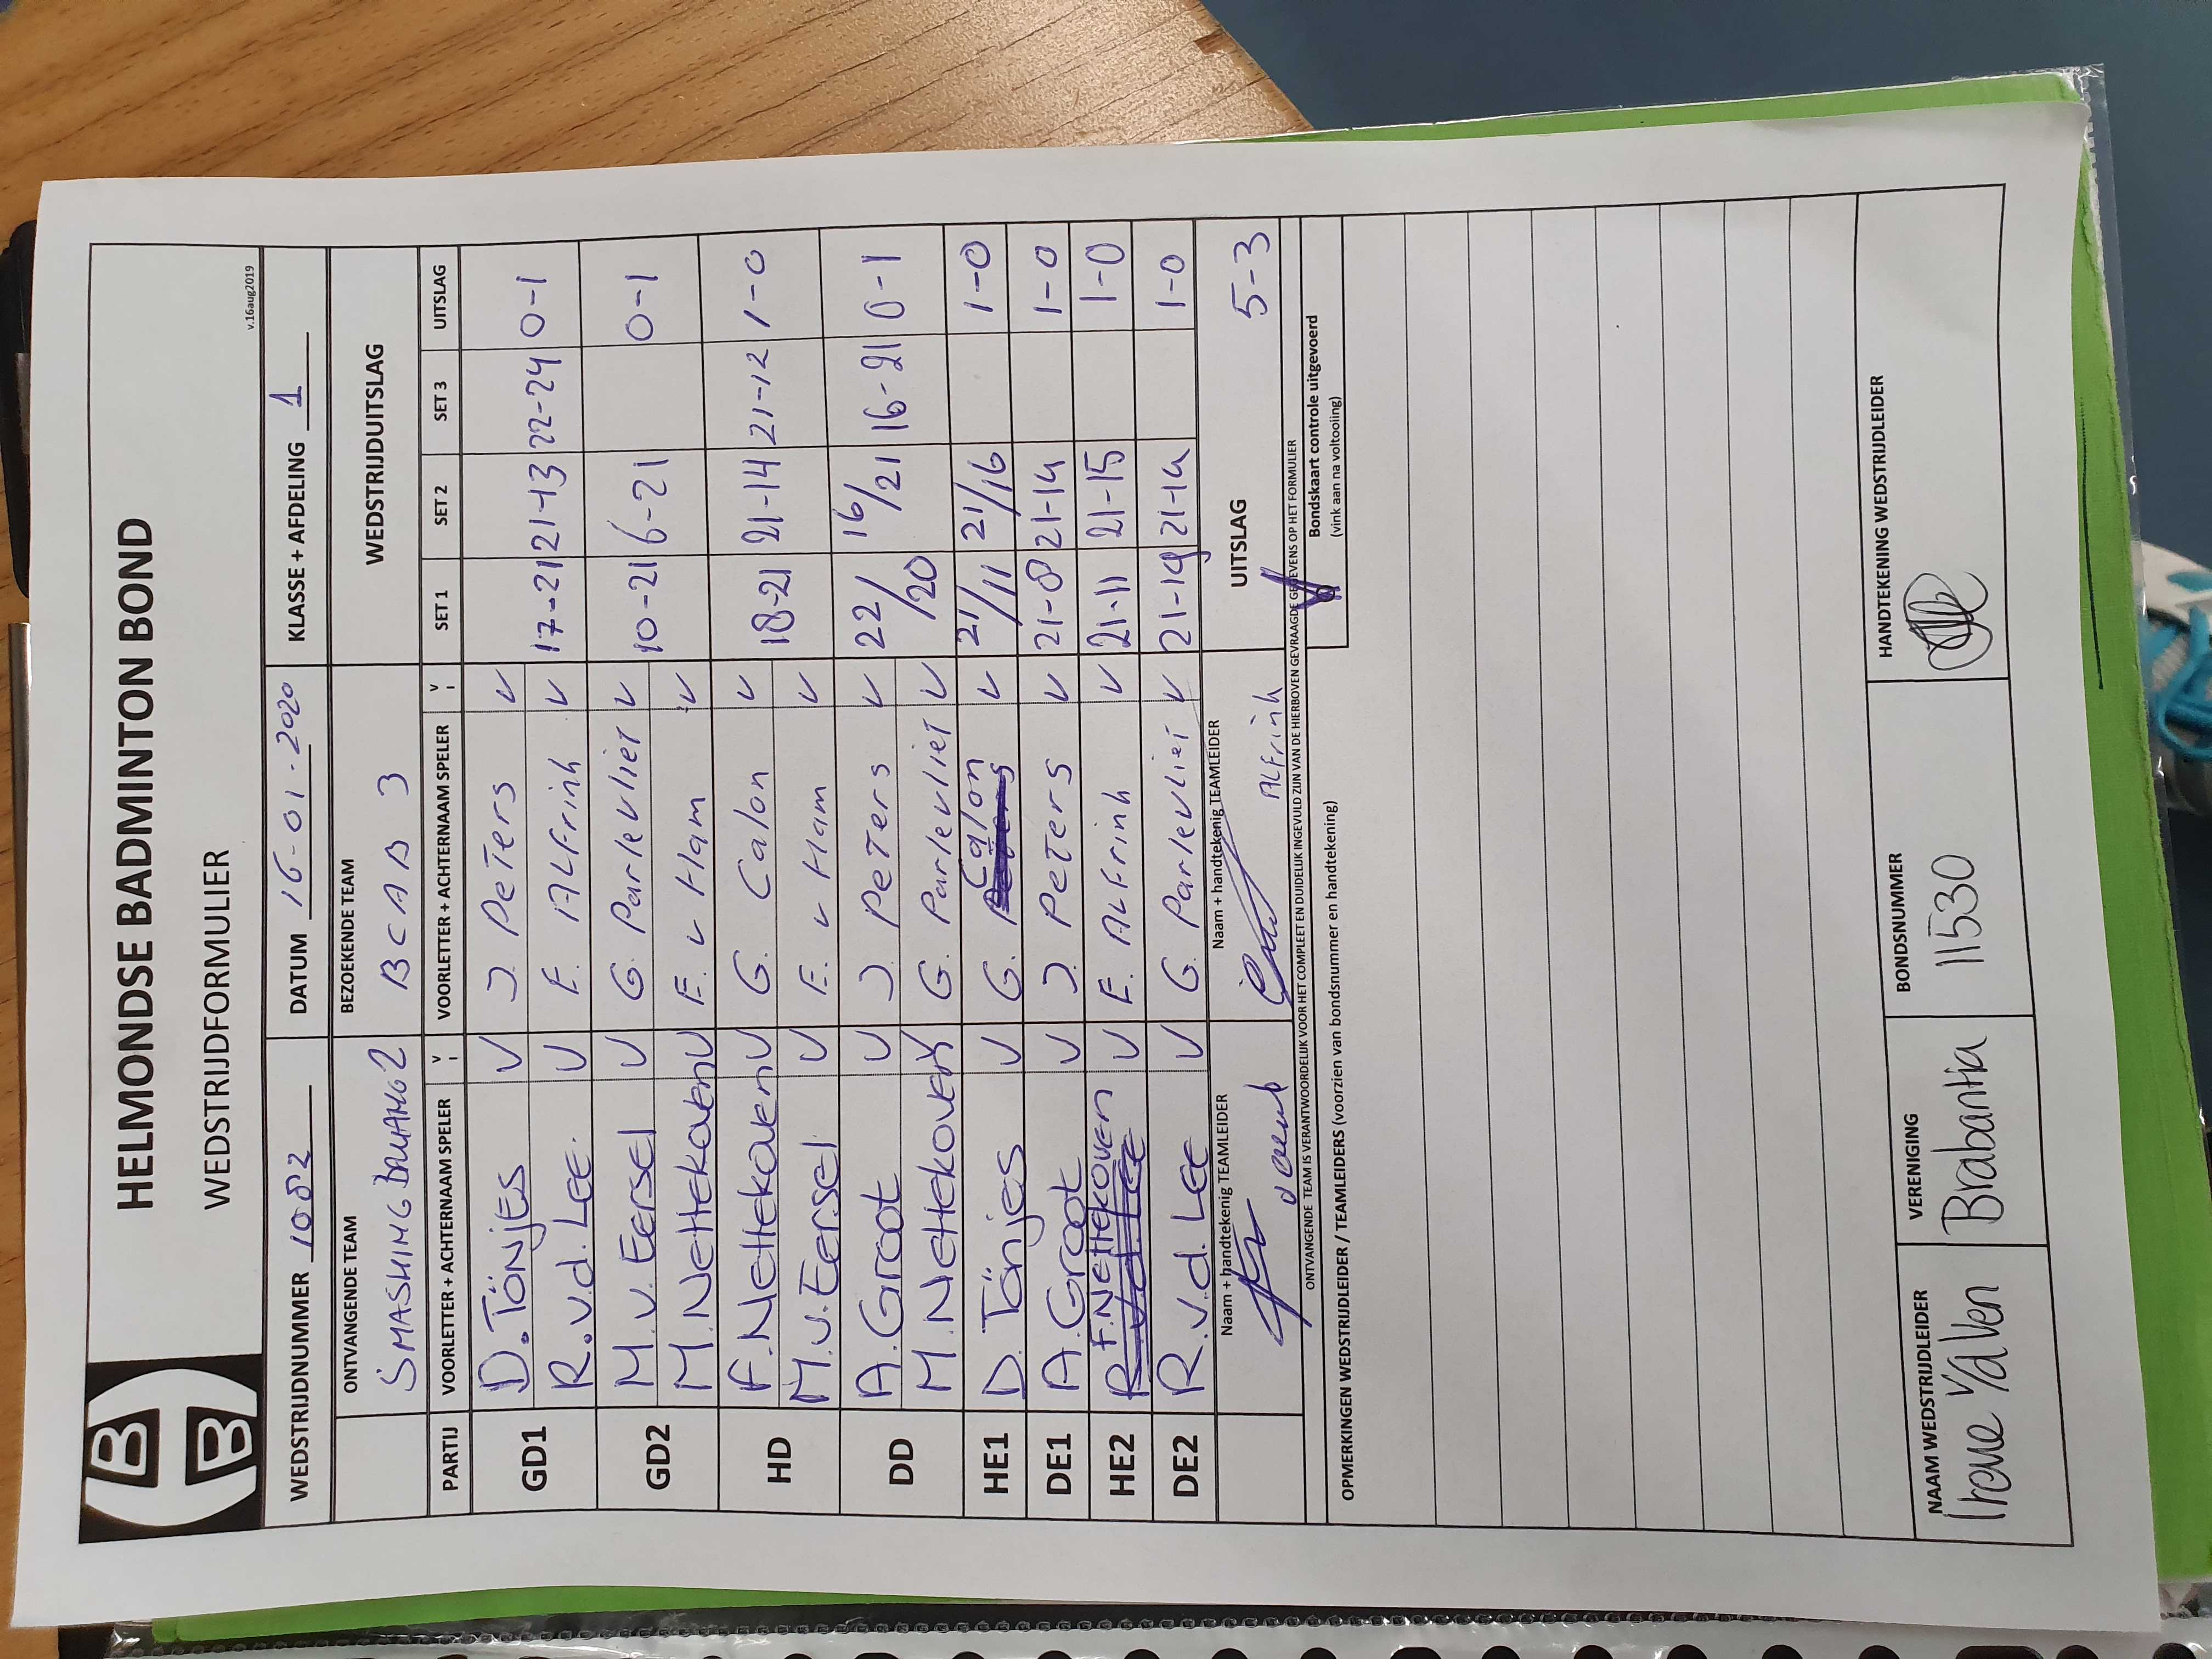 HELMONDSE BADMINTON BOND
WEDSTRIJDFORMULIER
v.16aug2019
WEDSTRIJDNUMMER 1082 DATUM 16-01-2020 KLASSE + AFDELING 1
ONTVANGENDE TEAM BEZOEKENDE TEAM WEDSTRIJDUITSLAG
SMASHING 2 BCAB 3
PARTIJ VOORLETTER + ACHTERNAAM SPELER V VOORLETTER + ACHTERNAAM SPELER V SET 1 SET 2 SET 3 UITSLAG
GD1 D. TÖNJES V J. PETERS V
R.v.d. LEE. V E. ALFrink V 17-21 21-13 22-24 0-1
GD2 M. v. EERSEL V G. Parlevliet V 10-21 6-21 0-1
M. NETTEKOVEN V E. v Ham V
HD F. NETTEKOVEN V G. Calon V 18-21 21-14 21-12 1-0
M. v. EERSEL V E. v Ham V
DD A. Groot V J. PETERS V 22/20 16/21 16-21 0-1
M. NETTEKOVEN V G. Parlevliet V
HE1 D. Tönjes V G. Calon V 21/11 21/16 1-0
DE1 A. Groot V J. PETERS V 21-8 21-14 1-0
HE2 F. NETTEKOVEN V E. ALFrink V 21-11 21-15 1-0
DE2 R.v.d. LEE V G. Parlevliet V 21-19 21-14 1-0
Naam + handtekenig TEAMLEIDER Naam + handtekenig TEAMLEIDER UITSLAG 5-3
ALFrink
ONTVANGENDE TEAM IS VERANTWOORDELIJK VOOR HET COMPLEET EN DUIDELIJK INGEVULD ZIJN VAN DE HIERBOVEN GEVRAAGDE GEGEVENS OP HET FORMULIER
Bondskaart controle uitgevoerd
(vink aan na voltooiing)
OPMERKINGEN WEDSTRIJDLEIDER / TEAMLEIDERS (voorzien van bondsnummer en handtekening)
NAAM WEDSTRIJDLEIDER VERENIGING BONDSNUMMER HANDTEKENING WEDSTRIJDLEIDER
Irene Brabantia 11530